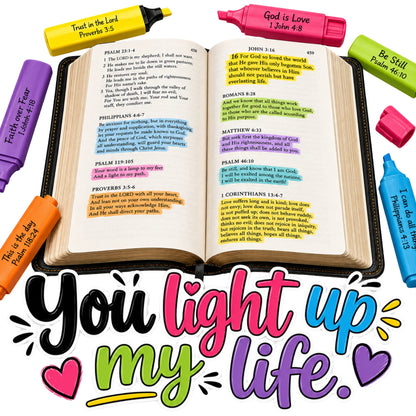 Trust in the Lord
Proverbs 3:5
God is Love
1 John 4:8
Be Still
Psalm 46:10
Faith over Fear
1 John 4:18
This is the day
Psalm 118:24
I can do all things
Philippians 4:13
PSALM 23:1-4
458
1 The LORD is my shepherd; I shall not want.
2 He makes me to lie down in green pastures;
He leads me beside the still waters.
3 He restores my soul;
He leads me in the paths of righteousness
For His name's sake.
4 Yea, though I walk through the valley of
shadow of death, I will fear no evil;
For You are with me; Your rod and Your
staff, they comfort me.
PHILIPPIANS 4:6-7
Be anxious for nothing, but in everything
by prayer and supplication, with thanksgiving,
let your requests be made known to God.
And the peace of God, which surpasses
all understanding, will guard your hearts
and minds through Christ Jesus.
PSALM 119:105
Your word is a lamp to my feet
And a light to my path.
PROVERBS 3:5-6
Trust in the LORD with all your heart,
And lean not on your own understanding;
In all your ways acknowledge Him,
And He shall direct your paths.
JOHN 3:16
459
16 For God so loved the world
that He gave His only begotten Son,
that whoever believes in Him
should not perish but have
everlasting life.
ROMANS 8:28
And we know that all things work
together for good to those who love God,
to those who are the called according
to His purpose.
MATTHEW 6:33
But seek first the kingdom of God
and His righteousness, and all
these things shall be added to you.
PSALM 46:10
Be still, and know that I am God;
I will be exalted among the nations,
I will be exalted in the earth!
1 CORINTHIANS 13:4-7
Love suffers long and is kind; love does
not envy; love does not parade itself,
is not puffed up; does not behave rudely,
does not seek its own, is not provoked,
thinks no evil; does not rejoice in iniquity,
but rejoices in the truth; bears all things,
believes all things, hopes all things,
endures all things.
You light up
my life.